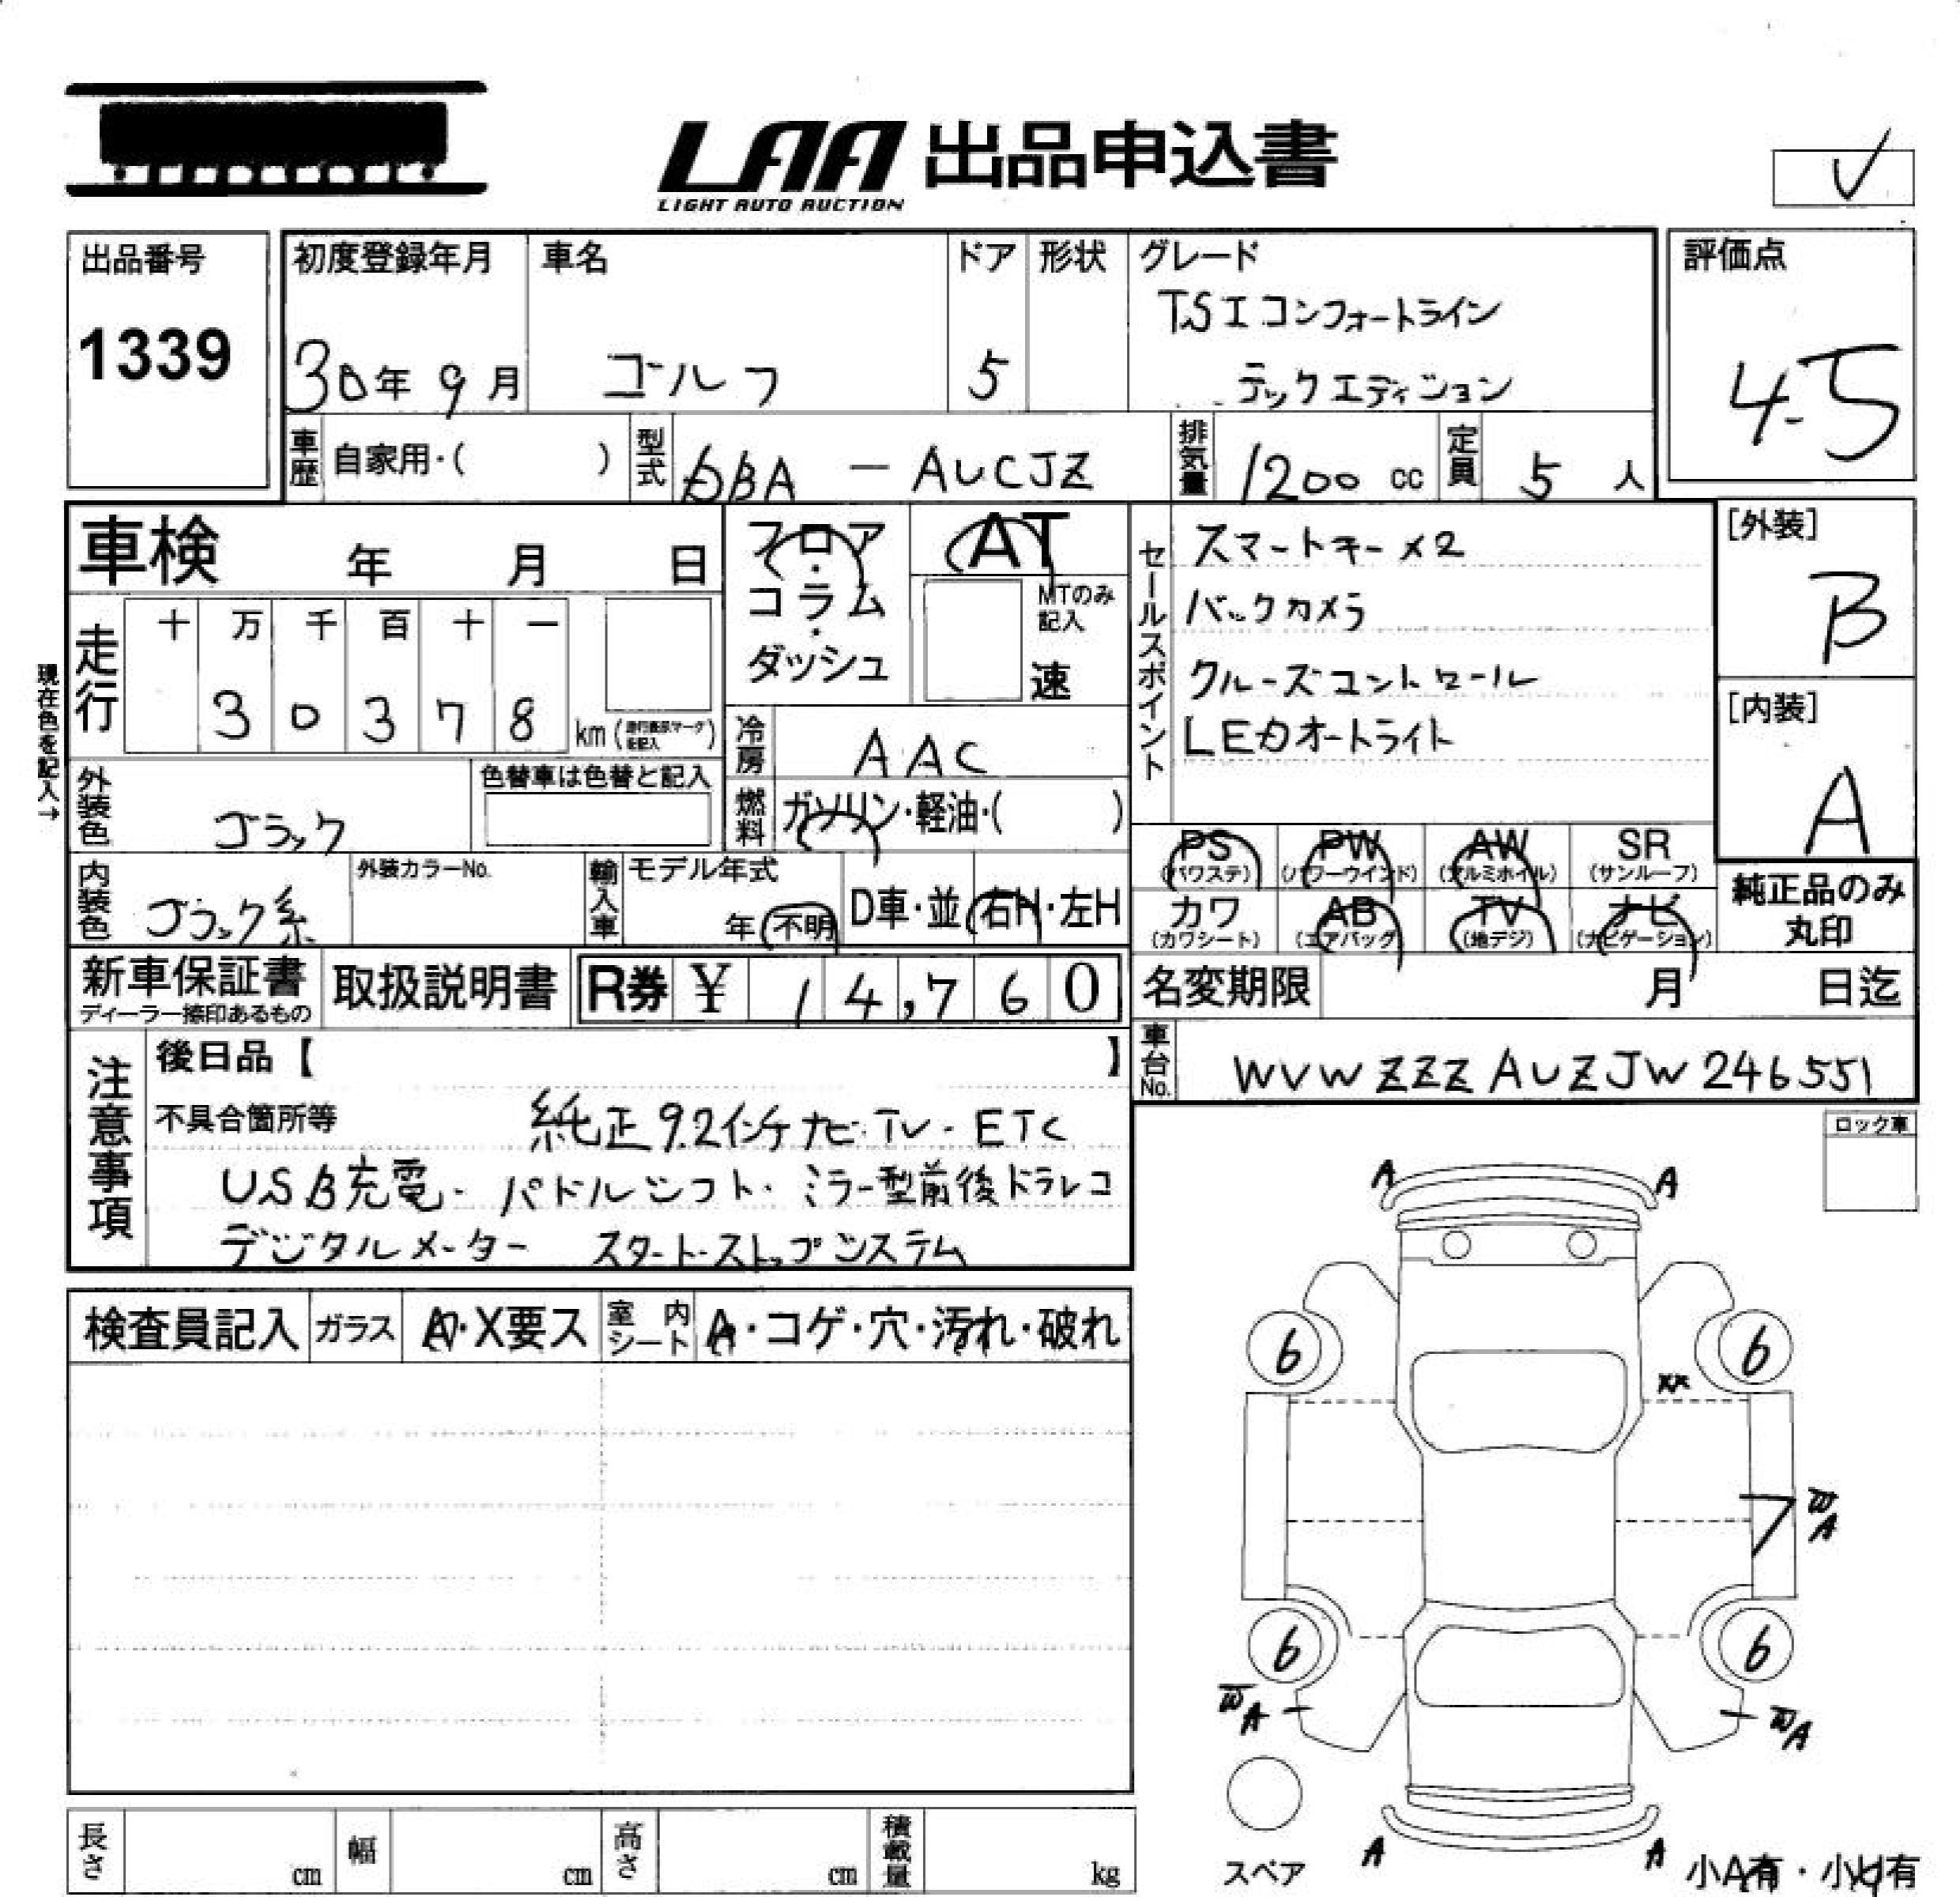 LAA 出品申込書
LIGHT AUTO AUCTION
出品番号
1339
初度登録年月
30年 9月
車名
ゴルフ
ドア
5
形状
グレード
TSI コンフォートライン
テックエディション
評価点
4.5
車歴 自家用・( )
型式 DBA - AUCJZ
排気量 1200 cc
定員 5 人
車検 年 月 日
フロア・コラム・ダッシュ
AT
MTのみ記入
速
セールスポイント
スマートキー×2
バックカメラ
クルーズコントロール
LEDオートライト
[外装]
B
[内装]
A
現在色を記入→
走行
十 万 千 百 十 一
3 0 3 7 8 km
冷房 AAC
外装色 ブラック
色替車は色替と記入
燃料 ガソリン・軽油・( )
PS (パワステ)
PW (パワーウインド)
AW (アルミホイル)
SR (サンルーフ)
内装色 ブラック系
外装カラーNo.
輸入車
モデル年式
年 不明
D車・並 右H・左H
カワ (カワシート)
AB (エアバック)
TV (地デジ)
ナビ (ナビゲーション)
純正品のみ
丸印
新車保証書
ディーラー捺印あるもの
取扱説明書
R券 ¥ 14,760
名変期限 月 日迄
車台No. WVWZZZAUZJW246551
注意事項
後日品【 】
不具合箇所等
純正9.2インチナビ・TV・ETC
USB充電・パドルシフト・ミラー型前後ドラレコ
デジタルメーター スタート・ストップシステム
ロック車
検査員記入
ガラス
A・X要ス
室内シート
A・コゲ・穴・汚れ・破れ
A A
6 6
XX
7 WA
6 6
WA WA
A A
スペア
小A有・小U有
長さ cm
幅 cm
高さ cm
積載量 kg